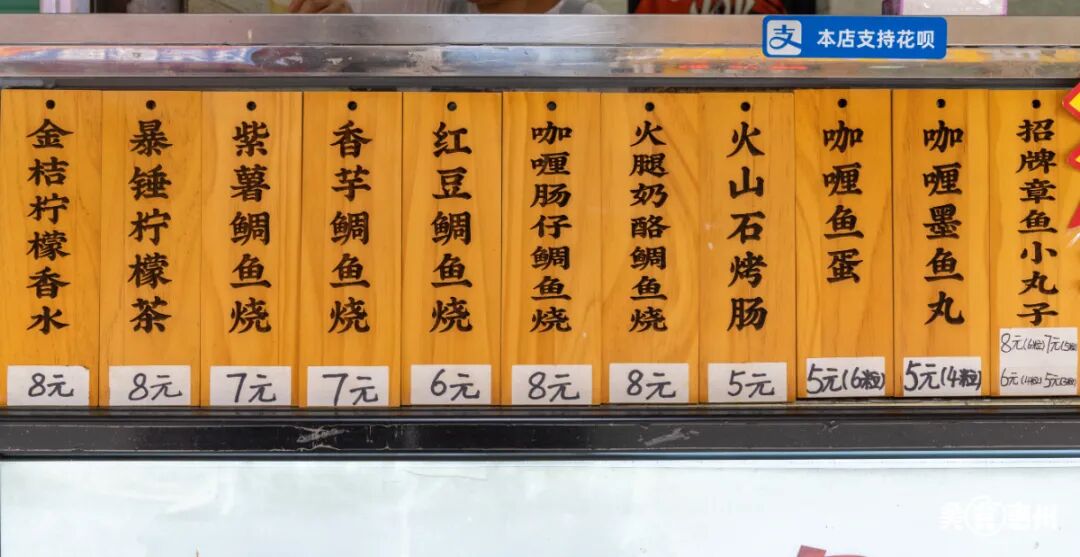 支 本店支持花呗
金桔柠檬香水
8元
暴锤柠檬茶
8元
紫薯鲷鱼烧
7元
香芋鲷鱼烧
7元
红豆鲷鱼烧
6元
咖喱肠仔鲷鱼烧
8元
火腿奶酪鲷鱼烧
8元
火山石烤肠
5元
咖喱鱼蛋
5元(6粒)
咖喱墨鱼丸
5元(4粒)
招牌章鱼小丸子
8元(6粒)7元(5粒)
6元(4粒)5元(3粒)